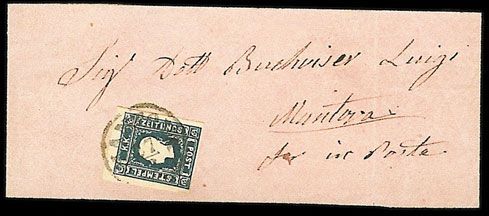 Sig.r Dott Buchviser Luigi
Mantova
fer in Posta
ZEITUNGS
K.K.
POST
STEMPEL